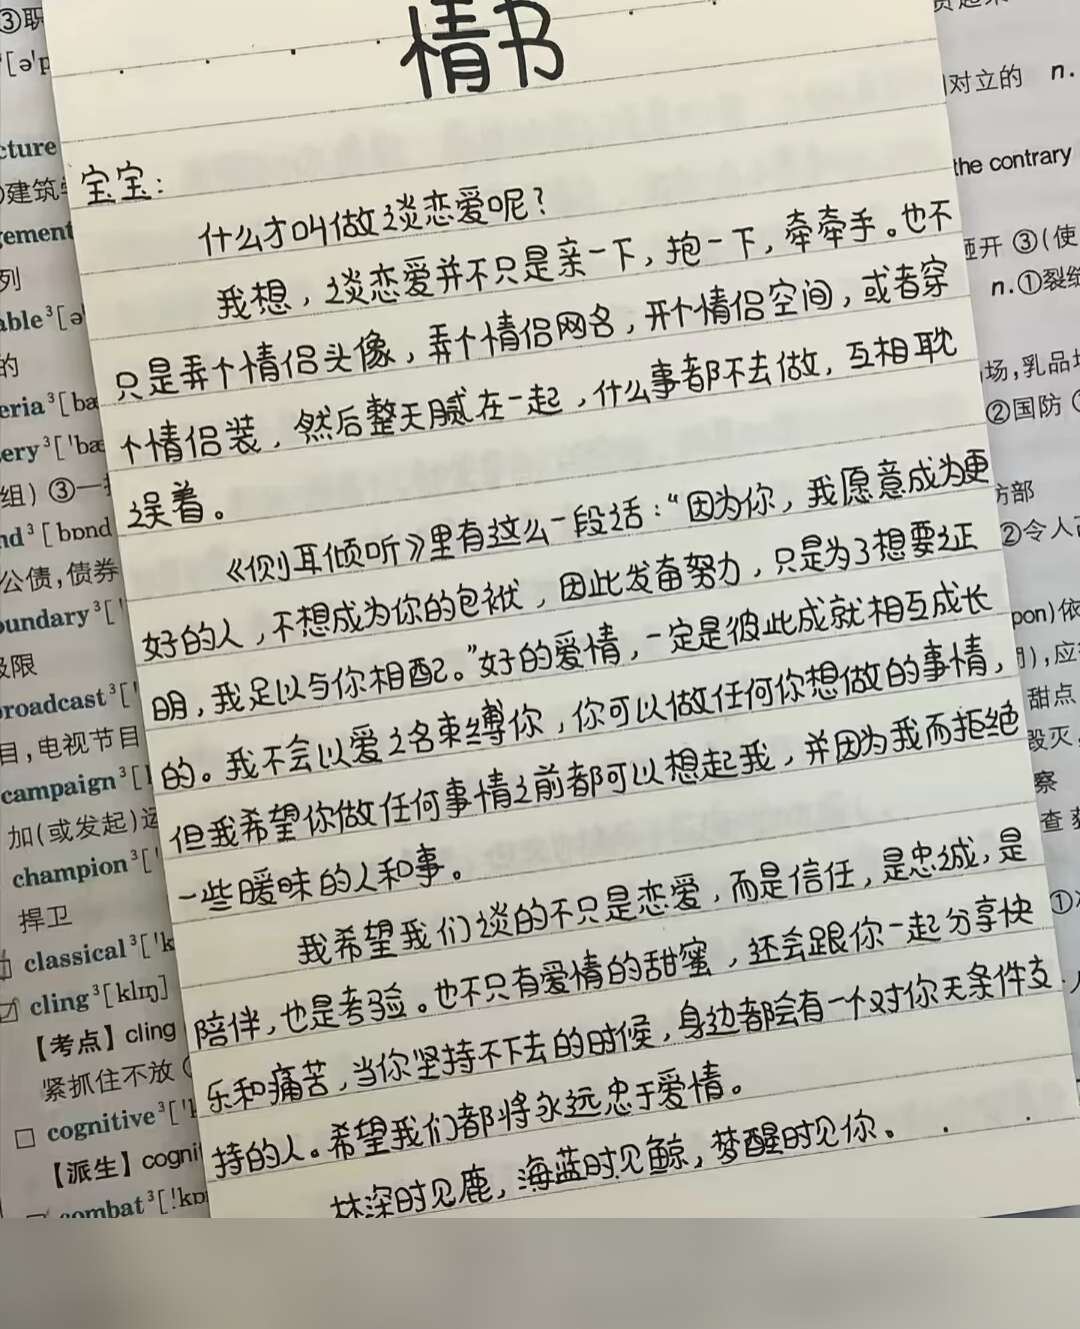 情书
宝宝：
什么才叫做谈恋爱呢？
我想，谈恋爱并不只是亲一下，抱一下，牵牵手。也不
只是弄个情侣头像，弄个情侣网名，开个情侣空间，或者穿
个情侣装，然后整天腻在一起，什么事都不去做，互相耽
误着。
《侧耳倾听》里有这么一段话：“因为你，我愿意成为更
好的人，不想成为你的包袱，因此发奋努力，只是为了想要证
明，我足以与你相配。”好的爱情，一定是彼此成就相互成长
的。我不会以爱之名束缚你，你可以做任何你想做的事情，
但我希望你做任何事情之前都可以想起我，并因为我而拒绝
一些暧昧的人和事。
我希望我们谈的不只是恋爱，而是信任，是忠诚，是
陪伴，也是考验。也不只有爱情的甜蜜，还会跟你一起分享快
乐和痛苦，当你坚持不下去的时候，身边都会有一个对你无条件支
持的人。希望我们都将永远忠于爱情。
林深时见鹿，海蓝时见鲸，梦醒时见你。
③职
cture
①建筑
gement
列
able³[ə
的
eria³[bæ
ery³['bæ
组）③一
nd³[bɒnd
公债，债券
oundary³['
极限
roadcast³['
目，电视节目
campaign³[
加（或发起）运
champion³['
捍卫
classical³['k
cling³[klɪŋ]
【考点】cling
紧抓住不放
cognitive³['
【派生】cogni
combat³['kɒ
对立的 n.
the contrary
③（使
n.①裂
场，乳品
②国防
方部
②令人
pon)依
，应
甜点
毁灭
察
查